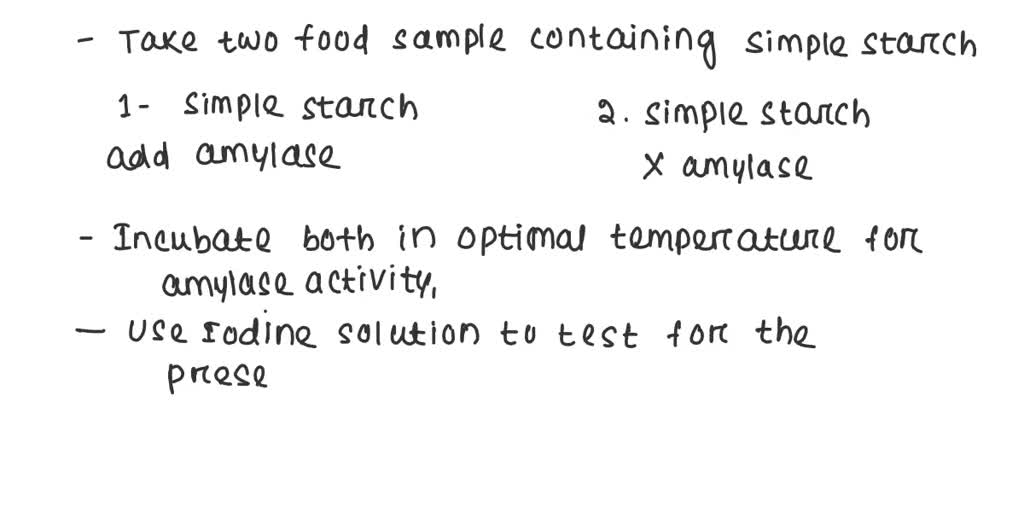 - Take two food sample containing simple starch
1- simple starch
add amylase
2. simple starch
X amylase
- Incubate both in optimal temperature for
amylase activity,
- Use Iodine solution to test for the
prese